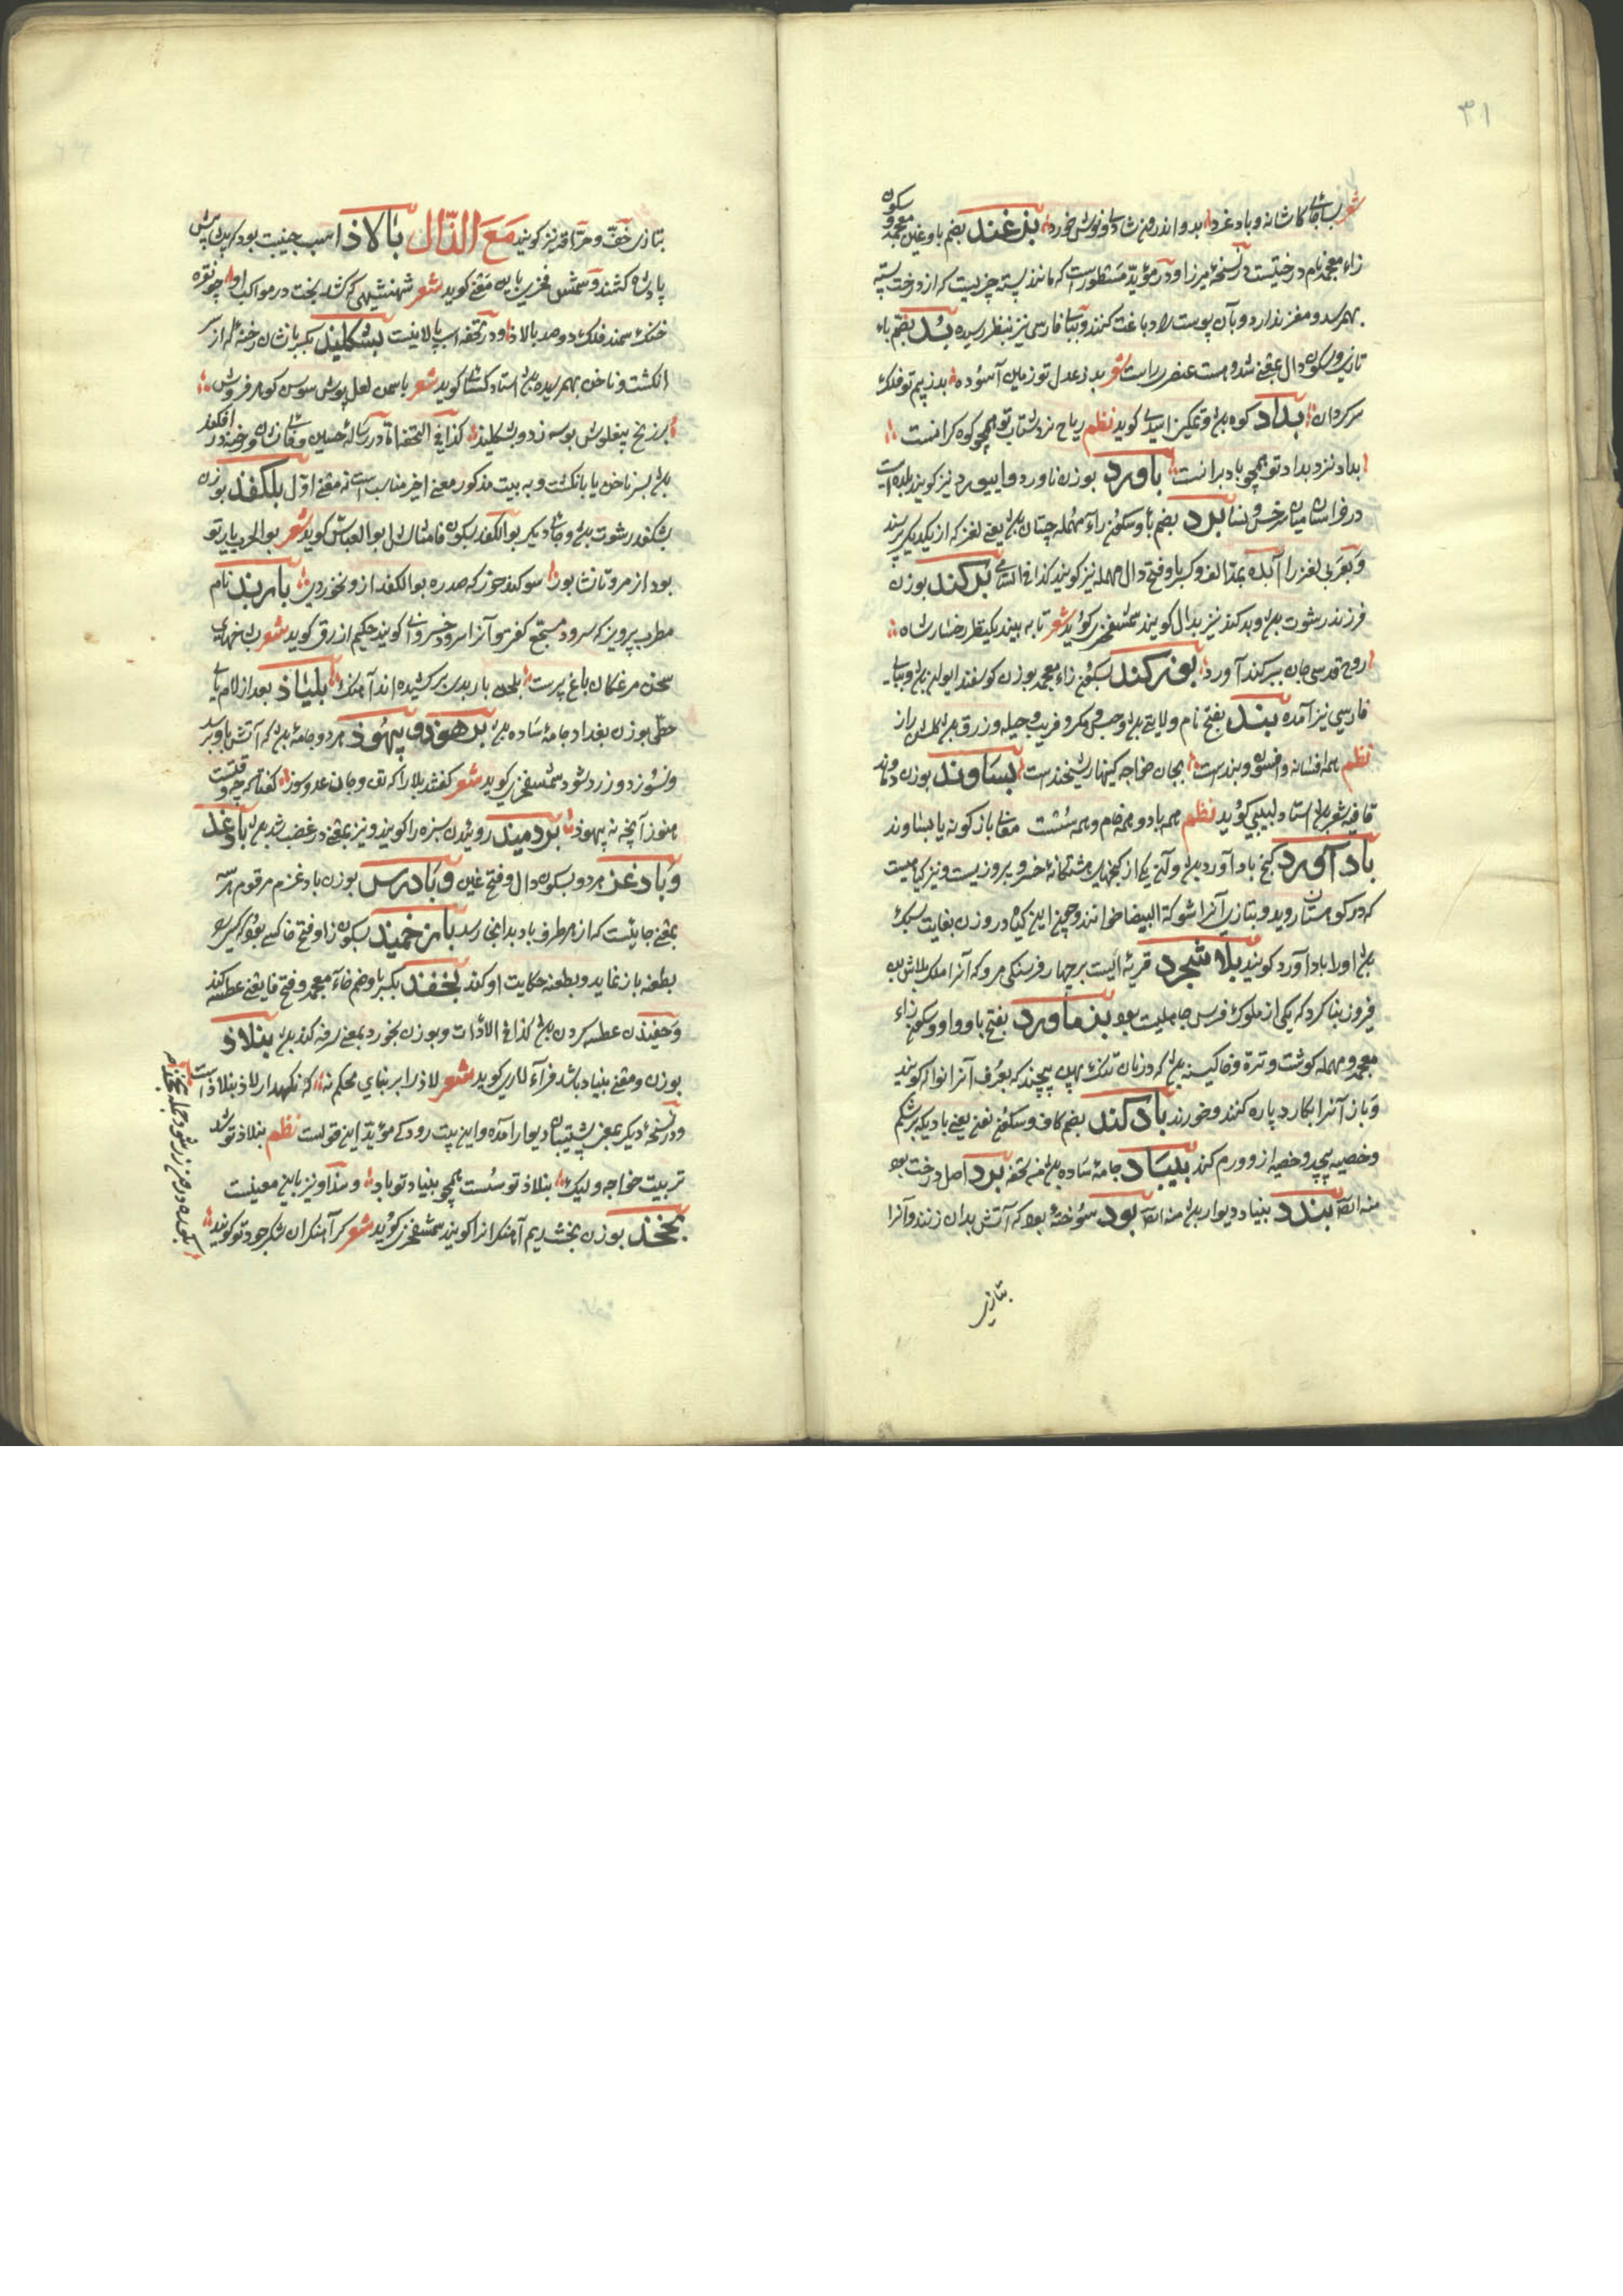 ۳۱
شعر بسا جای کاشانه و بادغرد بدو اندرون شادی و نوش خورد بزغند بضم با و غین معجمه و سکون
زاء معجمه نام درختیست در نسخهٔ میرزا و در مؤید مسطور است که مانند پسته چیزیست که از درخت پسته
بهم رسد و مغز ندارد و بآن پوست را دباغت کنند و ببای فارسی نیز بنظر رسیده بد بضم باء
تازی و سکون دال بمعنی شد و هست عنصری راست شعر بد ز عدل تو زمین آسوده بد ز بیم تو فلک
سرکردان بداد کوه باشد و تمکین اسدی کوید نظم ریاح نزد شتاب تو همچو کوه کرانست
بداد نزد بداد تو همچو باد برانست باورد بوزن ناورد و ابیورد نیز کویند بلده ایست
در خراسان میان سرخس و نسا برد بضم با و سکون راء مهمله چیستان باشد یعنی لغز که از یکدیکر پرسند
و بعربی لغز را آبده بمد الف و کسر با و فتح دال مهمله نیز کویند کذا فی السامی برکند بوزن
فرزند رشوت باشد و بدکند نیز بدال کویند شمس فخری کوید شعر تا به بیند یکنظر رخسار شاه
روح قدسی جان ببرکند آورد بوزکند بسکون زاء معجمه بوزن کوسفند ایوان باشد و ببای
فارسی نیز آمده بند بفتح نام ولایتی باشد و حبس و مکر و فریب و حیله و زرق باشد
نظم همه افسانه و افسون و بندست بجان خواجه کینها ریشخندست بساوند بوزن دماوند
قافیه شعر باشد استاد لبیبی کوید نظم همه باد و همه خام و همه سست معانی باز کونه یا بساوند
باد آورد کنج باد آورد باشد و آن یکی از کنجهای هشتکانهٔ خسرو پرویزست و نیز کیاهیست
که در کوهستان روید و بتازی آنرا شوکة البیضا خوانند و چون این کیاه در وزن بغایت سبک
باشد او را باد آورد کویند بلاشجرد قریهٔ ایست بر چهار فرسنکی مرو که آنرا ملک بلاش بن
فیروز بنا کرد که یکی از ملوک فرس جاهلیت بود بزماورد بفتح با و واو و سکون زاء
معجمه و مهمله کوشت و تره و خاکینه باشد که در نان تنک پهن پیچند که بعرف آنرا نواله کویند
و باز آنرا بکارد پاره کنند و خورند بادکند بضم کاف و سکون نون یعنی بادیکه بر شکم
و خصیه پیچد و خصیه ازو ورم کند بیباد جامهٔ ساده باشد من تحفه برد اصل درخت بود
منه ایضا بندد بنیاد دیوار باشد منه ایضا بود سوختهٔ بود که آتش بدان زنند و آنرا
بتازی
بتازی خف و حراقه نیز کویند مع الذال بالاذ اسب جنیبت بود که پیش
پادشاه کشند و شمس فخری باین معنی کوید شعر شهنشهی که کشد بخت در مواکب او چو نقره
خنک سمند فلک دو صد بالاذ و در تحفه اسب پالانیست بشکلیذ بکسر با نشان رخنه که از سر
انکشت و ناخن بهم رسیده باشد استاد کسائی کوید شعر یاسمن لعل پوش سوسن کوهر فروش
بر زنخ پیغلوش بوسه زد و بشکلید کذا فی التحفه اما در رسالهٔ حسین وفائی نشان و رخنه در افکند
باشد بسر ناخن یا بانکشت و به بیت مذکور معنی اخیر مناسب است نه معنی اول بلکفد بوزن
بشکفد رشوت باشد و جای دیکر بوالکفد بسکون فا مثال ابوالعباس کوید شعر بوالحرب یار تو
بود از مرو تا نشابور سوکند خور که صدره بوالکفد ازو نخوردی باربد نام
مطرب پرویز که سرود مسجع کفتی و آنرا سرود خسروانی کویند حکیم ازرقی کوید شعر
سخن مرغکان باغ پرست بلحن باربدی برکشیده اند آهنک بلیاذ بعد از لام یای
حطی بوزن بغداد جامهٔ ساده باشد برهوذ و بیهوذ هر دو جامهٔ باشد که آتش باو رسد
و نسوزد و زرد شود شمس فخری کوید شعر کفتند بلا را که تف و جان عدو سوز کفتا که چو وقتست
هنوز آنچه نه بیهوذ بردمید روئیدن سبزه را کویند و نیز بمعنی در غضب شد باشد بادغد
و بادغر هر دو بسکون دال و فتح غین و بادرس بوزن بادغزم مرقوم
بمعنی جائیست که از هر طرف باد بدانجا رسد بازخمید بسکون زا و فتح خا کسی بود که کسی را
بطعنه باز نماید و بطعنه حکایت او کند بخفد بکسر با و ضم خاء معجمه و فتح فا یعنی عطسه کند
و خفیدن عطسه کردن باشد کذا فی الادات و بوزن بخورد بمعنی سرفه کند باشد بنلاذ
بوزن و معنی بنیاد باشد فرالاری کوید شعر لاذ را بر بنای محکم نه که نکهدار لاذ بنلاذ است
و در نسخهٔ دیکر بمعنی پشتیبان دیوار آمده و این بیت رودکی مؤید این قولست نظم بنلاذ تو شد
تربیت خواجه ولیک بنلاذ تو سست همچو بنیاد تو باد و بنداو نیز باین معینست
بخخذ بوزن بخشدیم آهنکرانرا کویند شمس فخری کوید شعر کر آهنکران شکر جود تو کویند